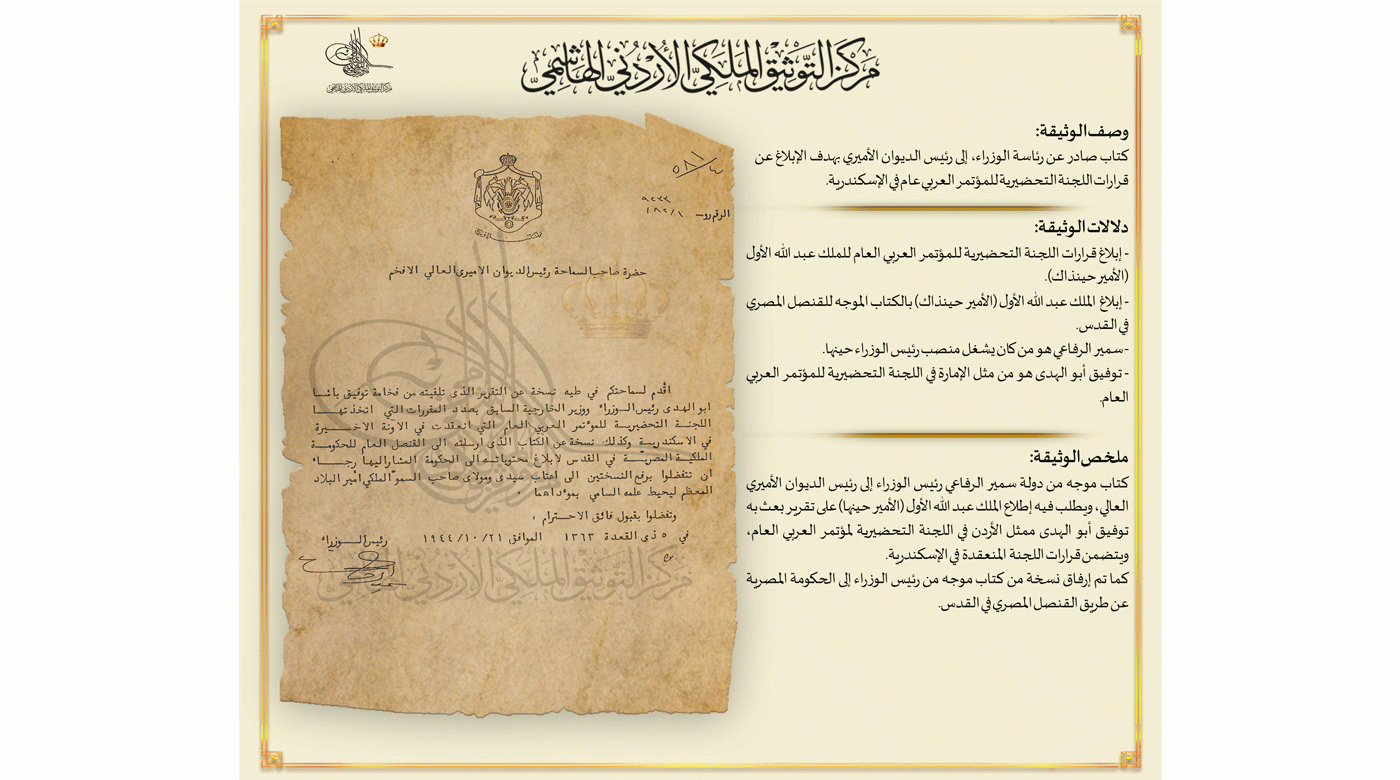 مركز التوثيق الملكي الأردني الهاشمي
وصف الوثيقة:
كتاب صادر عن رئاسة الوزراء، إلى رئيس الديوان الأميري بهدف الإبلاغ عن
قرارات اللجنة التحضيرية للمؤتمر العربي عام في الإسكندرية.
دلالات الوثيقة:
- إبلاغ قرارات اللجنة التحضيرية للمؤتمر العربي العام للملك عبد الله الأول
(الأمير حينذاك).
- إبلاغ الملك عبد الله الأول (الأمير حينذاك) بالكتاب الموجه للقنصل المصري
في القدس.
- سمير الرفاعي هو من كان يشغل منصب رئيس الوزراء حينها.
- توفيق أبو الهدى هو من مثل الإمارة في اللجنة التحضيرية للمؤتمر العربي
العام.
ملخص الوثيقة:
كتاب موجه من دولة سمير الرفاعي رئيس الوزراء إلى رئيس الديوان الأميري
العالي، ويطلب فيه إطلاع الملك عبد الله الأول (الأمير حينها) على تقرير بعث به
توفيق أبو الهدى ممثل الأردن في اللجنة التحضيرية لمؤتمر العربي العام،
ويتضمن قرارات اللجنة المنعقدة في الإسكندرية.
كما تم إرفاق نسخة من كتاب موجه من رئيس الوزراء إلى الحكومة المصرية
عن طريق القنصل المصري في القدس.
الرقم رو
حضرة صاحب السماحة رئيس الديوان الاميري العالي الافخم
اقدم لسماحتكم في طيه نسخة عن التقرير الذى تلقيته من فخامة توفيق باشا
ابو الهدى رئيس الوزراء ووزير الخارجية السابق بصدد المقررات التي اتخذتها
اللجنة التحضيرية للمؤتمر العربي العام التي انعقدت في الاونة الاخيرة
في الاسكندرية وكذلك نسخة عن الكتاب الذى ارسلته الى القنصل العام للحكومة
الملكية المصرية في القدس لابلاغ محتوياته الى الحكومة المشار اليها رجاء
ان تتفضلوا برفع النسختين الى اعتاب سيدى ومولاى صاحب السمو الملكي امير البلاد
المعظم ليحيط علمه السامي بمؤداهما .
وتفضلوا بقبول فائق الاحترام ،
في ٥ ذى القعدة ١٣٦٣ الموافق ١٩٤٤/١٠/٢١ رئيس الوزراء